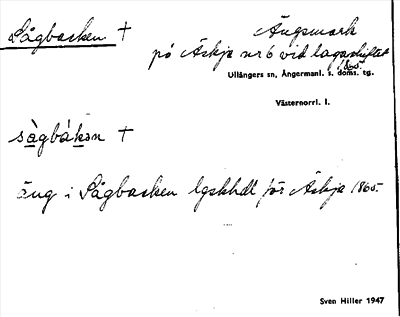 Sågbacken † Ängsmark
på Äskja nr 6 vid lagaskiftet
1865.
Ullångers sn, Ångermanl. s. doms. tg.
Västernorrl. l.
sàgbákən †
äng i Sågbacken lgskhdl för Äskja 1865
Sven Hiller 1947